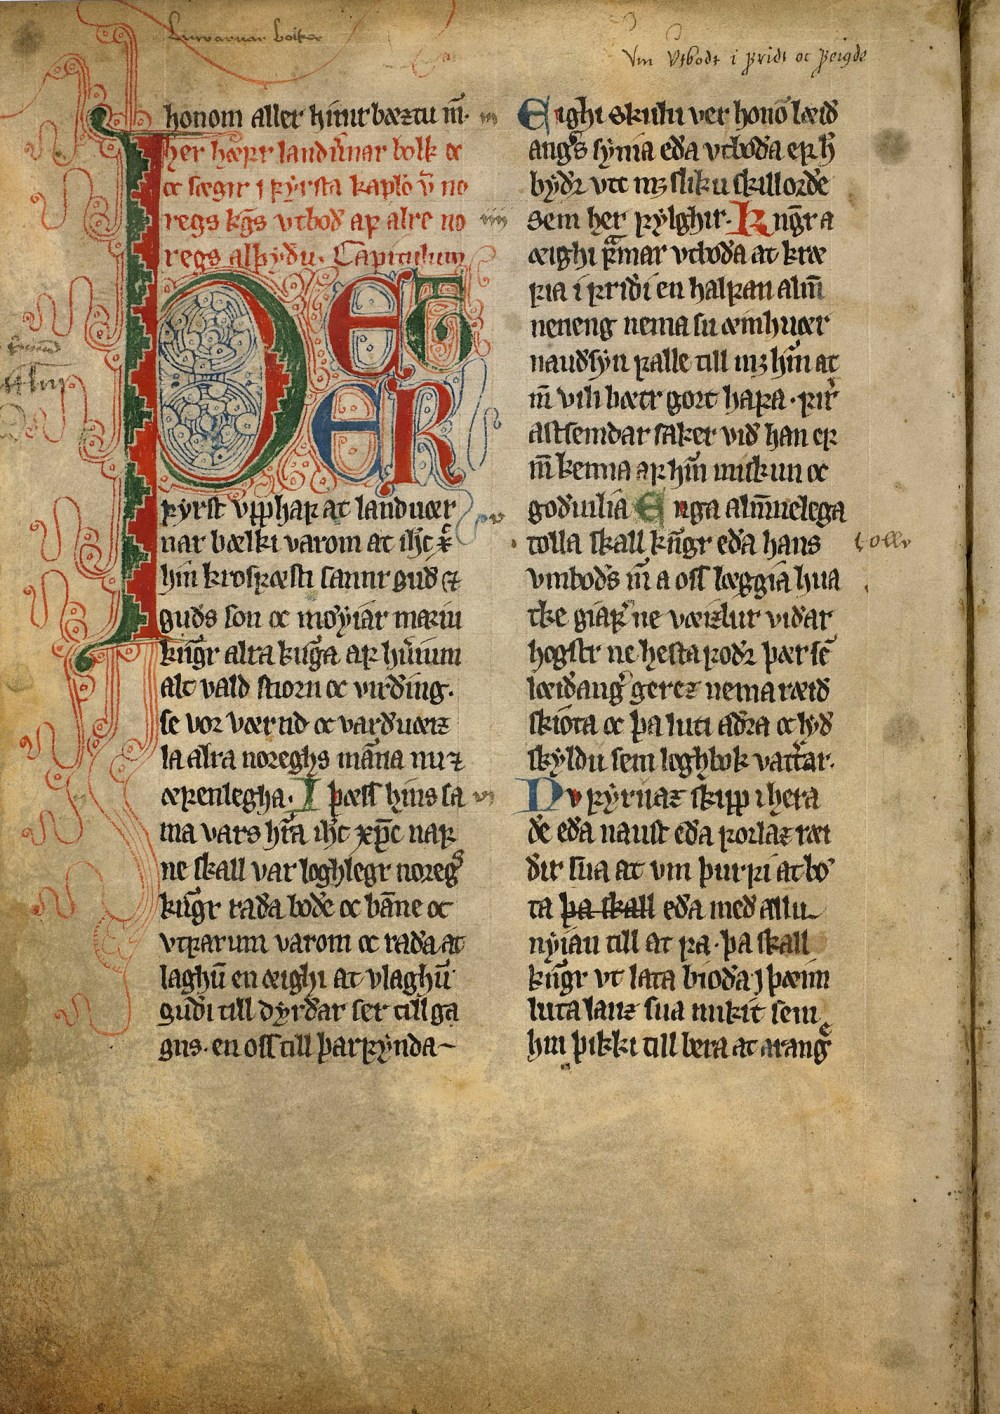 Landvarnar bolker
Vm Vtbodt i fridt oc feigde
honom aller hinir bæztu m̄.
Her hæfr landvarnar bolk oc
oc sægir i fyrsta kaplo v̄ no
regs kgs vtboð af alre no
regs alþyðu. Capitulum
ÞET
ER
fyrst vpphaf at landuær
nar bælki varom at ih̄c x̄
hin krosfæsti sannr guð ⁊
guðs son oc møyiar mariu
kūgr alra kūga af hūium
alt vald stiorn oc virðing.
se vor værnd oc varðuæiz
la alra noreghs māna nu ⁊
æfenlegha. I þæss hins sa
ma vars hr̄a ih̄c xp̄c naf
ne skall var loghlegr noregs
kūgr raða boðe oc bāne oc
vtfarum varom oc raða at
laghū en æighi at vlaghū
guði till dyrðar ser till ga
gns. en oss till þarfynda
iii
iiii
v
vi
Eighi skulu ver honō læið
angs synia eða vtboða ef h̄
byðr vt mz sliku skillorðe
sem her fylghir. Kūgr a
æighi framar vtboða at kræ
fia i friði en halfan alm̄
neneng nema su æinhuær
nauðsyn falle till mz hm̄ at
m̄ vili bætr gort hafa. fir
astsemdar saker við han ef
m̄ kenna af hm̄ miskun oc
goðuilia Enga alm̄uelega
tolla skall kūgr eða hans
vmboðs m̄ a oss læggia hua
tke giaf ne væizlur viðar
hogstr ne hesta foðr þær sē
læiðangr gerez nema ræið
skiota oc þa luti aðra oc lyð
skyldu sem loghbok vattar.
Nv fyrnaz skip i hera
ðe eða naust eða forlaz ræi
ðir sua at vm þurfi at bo
ta þa skall eða með allu
nyiau till at fa. þa skall
kūgr vt lata bioða j þæim
luta lanz sua mikit sem
hm̄ þikki till bera at arang
tolle